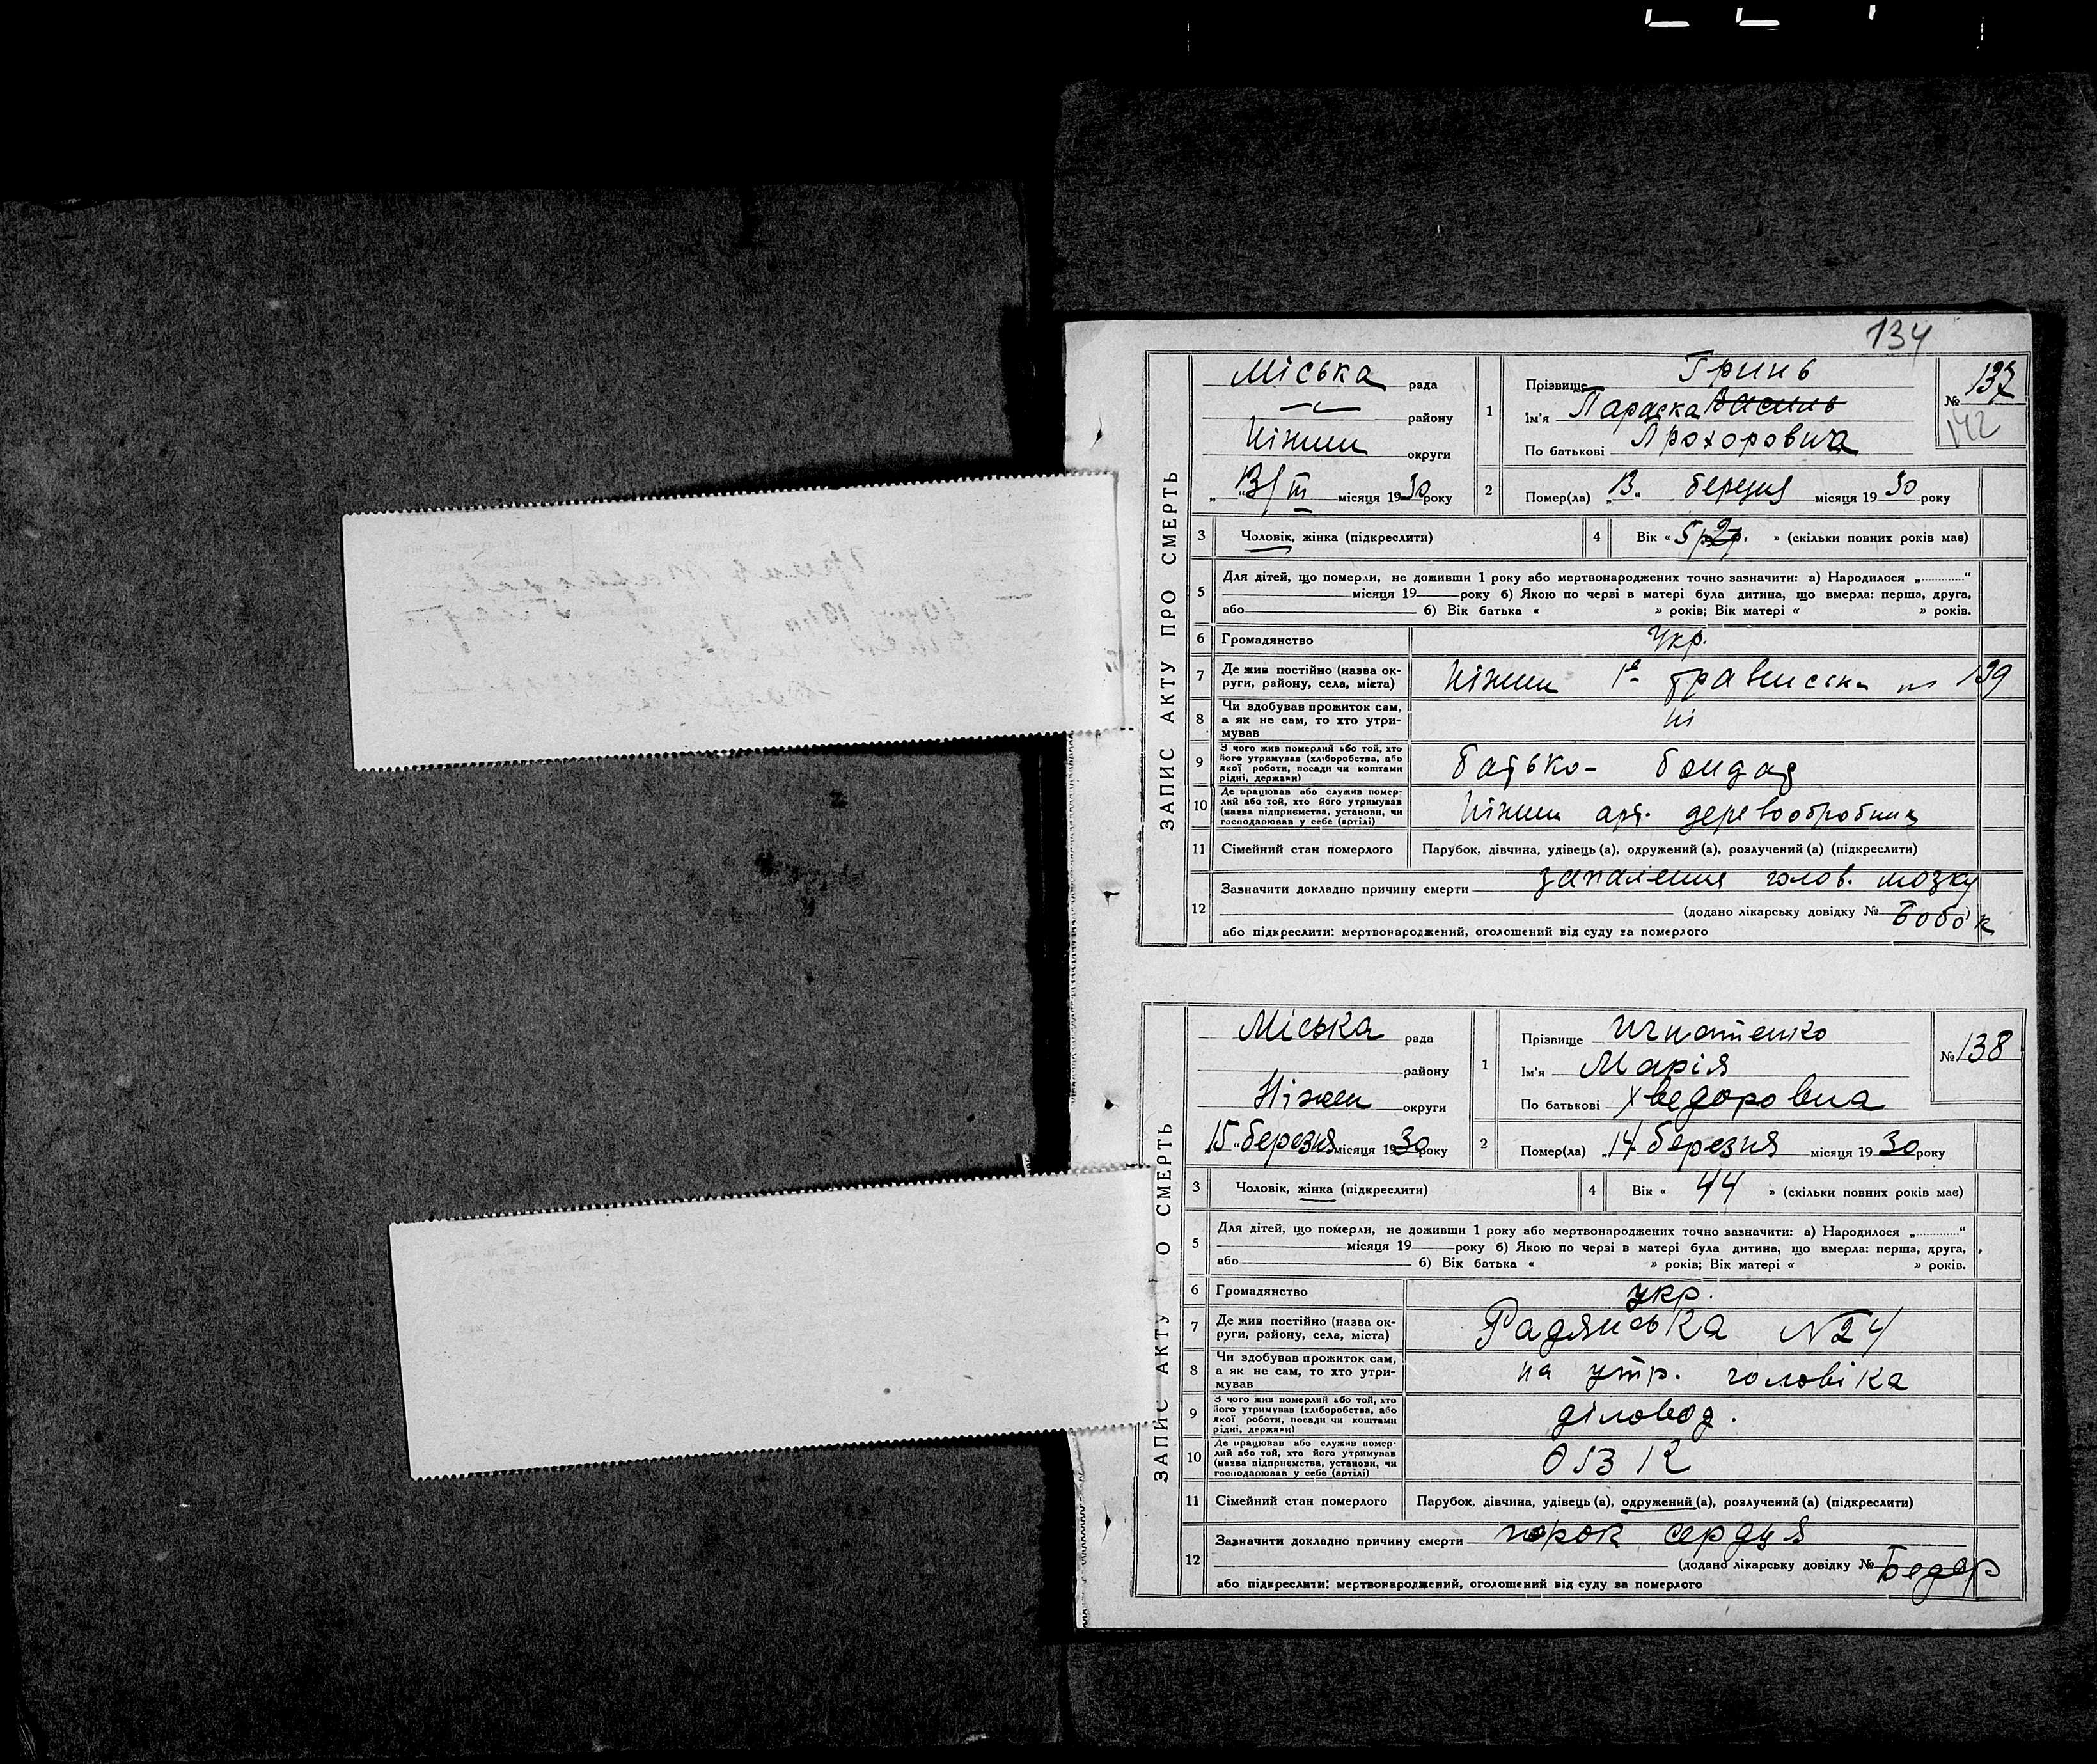 134
ЗАПИС АКТУ ПРО СМЕРТЬ
Міська рада
району
Ніжин округи
"13/III місяця 1930 року
1
Прізвище Гринь
Ім'я Параска Василь
По батькові Прохоровича
№ 137
142
2 Помер(ла) "13" березня місяця 1930 року
3 Чоловік, жінка (підкреслити)
4 Вік « 5 р. » (скільки повних років мав)
5 Для дітей, що померли, не доживши 1 року або мертвонароджених точно зазначити: а) Народилося „............“
місяця 19 року б) Якою по черзі в матері була дитина, що вмерла: перша, друга,
або б) Вік батька « » років; Вік матері « » років.
6 Громадянство Укр.
7 Де жив постійно (назва округи, району, села, міста) Ніжин 139
8 Чи здобував прожиток сам, а як не сам, то хто утримував ні
9 З чого жив померлий або той, хто його утримував (хліборобства, або якої роботи, посади чи коштами рідні, держави) батько - бондар
10 Де працював або служив померлий або той, хто його утримував (назва підприємства, установи, чи господарював у себе (артілі) Ніжин арт. деревообробник
11 Сімейний стан померлого Парубок, дівчина, удівець (а), одружений (а), розлучений (а) (підкреслити)
12 Зазначити докладно причину смерти запалення голов. мозку
(додано лікарську довідку № Бобок
або підкреслити: мертвонароджений, оголошений від суду за померлого
ЗАПИС АКТУ О СМЕРТЬ
Міська рада
району
Ніжен округи
"15" березня місяця 1930 року
1
Прізвище Игнатенко
Ім'я Марія
По батькові Хведоровна
№ 138
2 Помер(ла) "14" березня місяця 1930 року
3 Чоловік, жінка (підкреслити)
4 Вік « 44 » (скільки повних років мав)
5 Для дітей, що померли, не доживши 1 року або мертвонароджених точно зазначити: а) Народилося „............“
місяця 19 року б) Якою по черзі в матері була дитина, що вмерла: перша, друга,
або б) Вік батька « » років; Вік матері « » років.
6 Громадянство укр.
7 Де жив постійно (назва округи, району, села, міста) Радянська №24
8 Чи здобував прожиток сам, а як не сам, то хто утримував на утр. чоловіка
9 З чого жив померлий або той, хто його утримував (хліборобства, або якої роботи, посади чи коштами рідні, держави) діловод.
10 Де працював або служив померлий або той, хто його утримував (назва підприємства, установи, чи господарював у себе (артілі)
11 Сімейний стан померлого Парубок, дівчина, удівець (а), одружений (а), розлучений (а) (підкреслити)
12 Зазначити докладно причину смерти порок сердця
(додано лікарську довідку № Бедар
або підкреслити: мертвонароджений, оголошений від суду за померлого